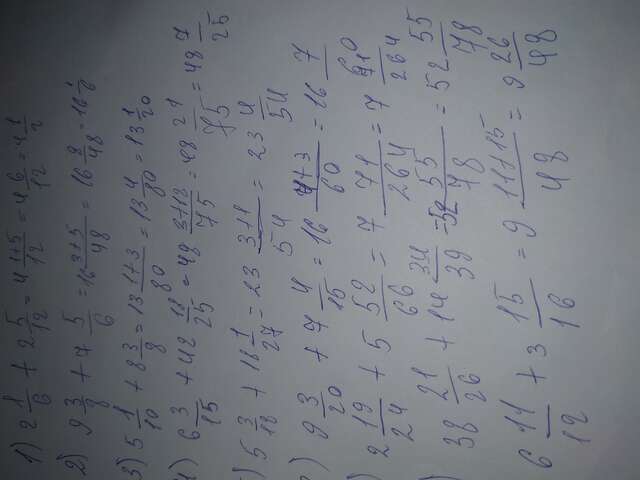 1) 2 1/6 + 2 5/12 = 4 1+5/12 = 4 6/12 = 4 1/2
2) 9 3/8 + 7 5/6 = 16 3+5/48 = 16 8/48 = 16 1/6
3) 5 1/10 + 8 3/8 = 13 1+3/80 = 13 4/80 = 13 1/20
4) 6 3/15 + 42 18/25 = 48 3+18/75 = 48 21/75 = 48 7/25
) 5 3/18 + 18 1/27 = 23 3+1/54 = 23 4/54
) 9 3/20 + 7 4/15 = 16 4+3/60 = 16 7/60
) 2 19/24 + 5 52/66 = 7 71/264 = 7 71/264
) 38 21/26 + 14 34/39 = 52 55/78 = 52 55/78
6 11/12 + 3 15/16 = 9 11+15/48 = 9 26/48